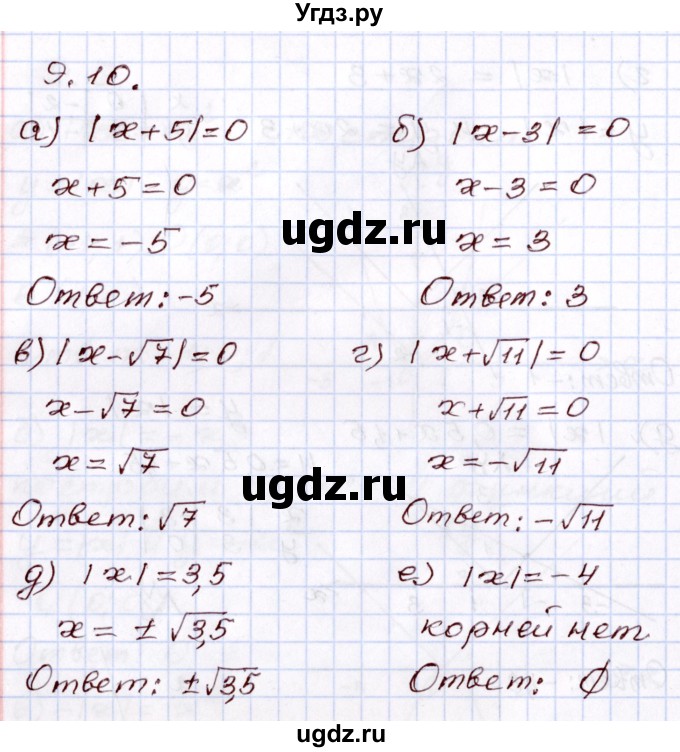 Угдз.ру
9.10.
а) |x+5|=0
x+5=0
x=-5
Ответ: -5
б) |x-3|=0
x-3=0
x=3
Ответ: 3
ugdz.ru
в) |x-√7|=0
x-√7=0
x=√7
Ответ: √7
г) |x+√11|=0
x+√11=0
x=-√11
Ответ: -√11
ugdz.ru
д) |x|=3,5
x=±√3,5
Ответ: ±√3,5
е) |x|=-4
корней нет
Ответ: ∅